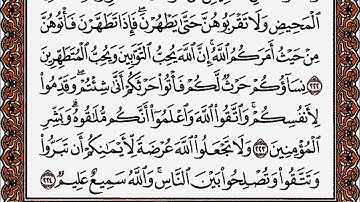 ٱلْمَحِيضِ وَلَا تَقْرَبُوهُنَّ حَتَّىٰ يَطْهُرْنَ ۖ فَإِذَا تَطَهَّرْنَ فَأْتُوهُنَّ
مِنْ حَيْثُ أَمَرَكُمُ ٱللَّهُ ۚ إِنَّ ٱللَّهَ يُحِبُّ ٱلتَّوَّٰبِينَ وَيُحِبُّ ٱلْمُتَطَهِّرِينَ
٢٢٢ نِسَآؤُكُمْ حَرْثٌ لَّكُمْ فَأْتُوا۟ حَرْثَكُمْ أَنَّىٰ شِئْتُمْ ۖ وَقَدِّمُوا۟
لِأَنفُسِكُمْ ۚ وَٱتَّقُوا۟ ٱللَّهَ وَٱعْلَمُوٓا۟ أَنَّكُم مُّلَٰقُوهُ ۗ وَبَشِّرِ
ٱلْمُؤْمِنِينَ ٢٢٣ وَلَا تَجْعَلُوا۟ ٱللَّهَ عُرْضَةً لِّأَيْمَٰنِكُمْ أَن تَبَرُّوا۟
وَتَتَّقُوا۟ وَتُصْلِحُوا۟ بَيْنَ ٱلنَّاسِ ۗ وَٱللَّهُ سَمِيعٌ عَلِيمٌ ٢٢٤